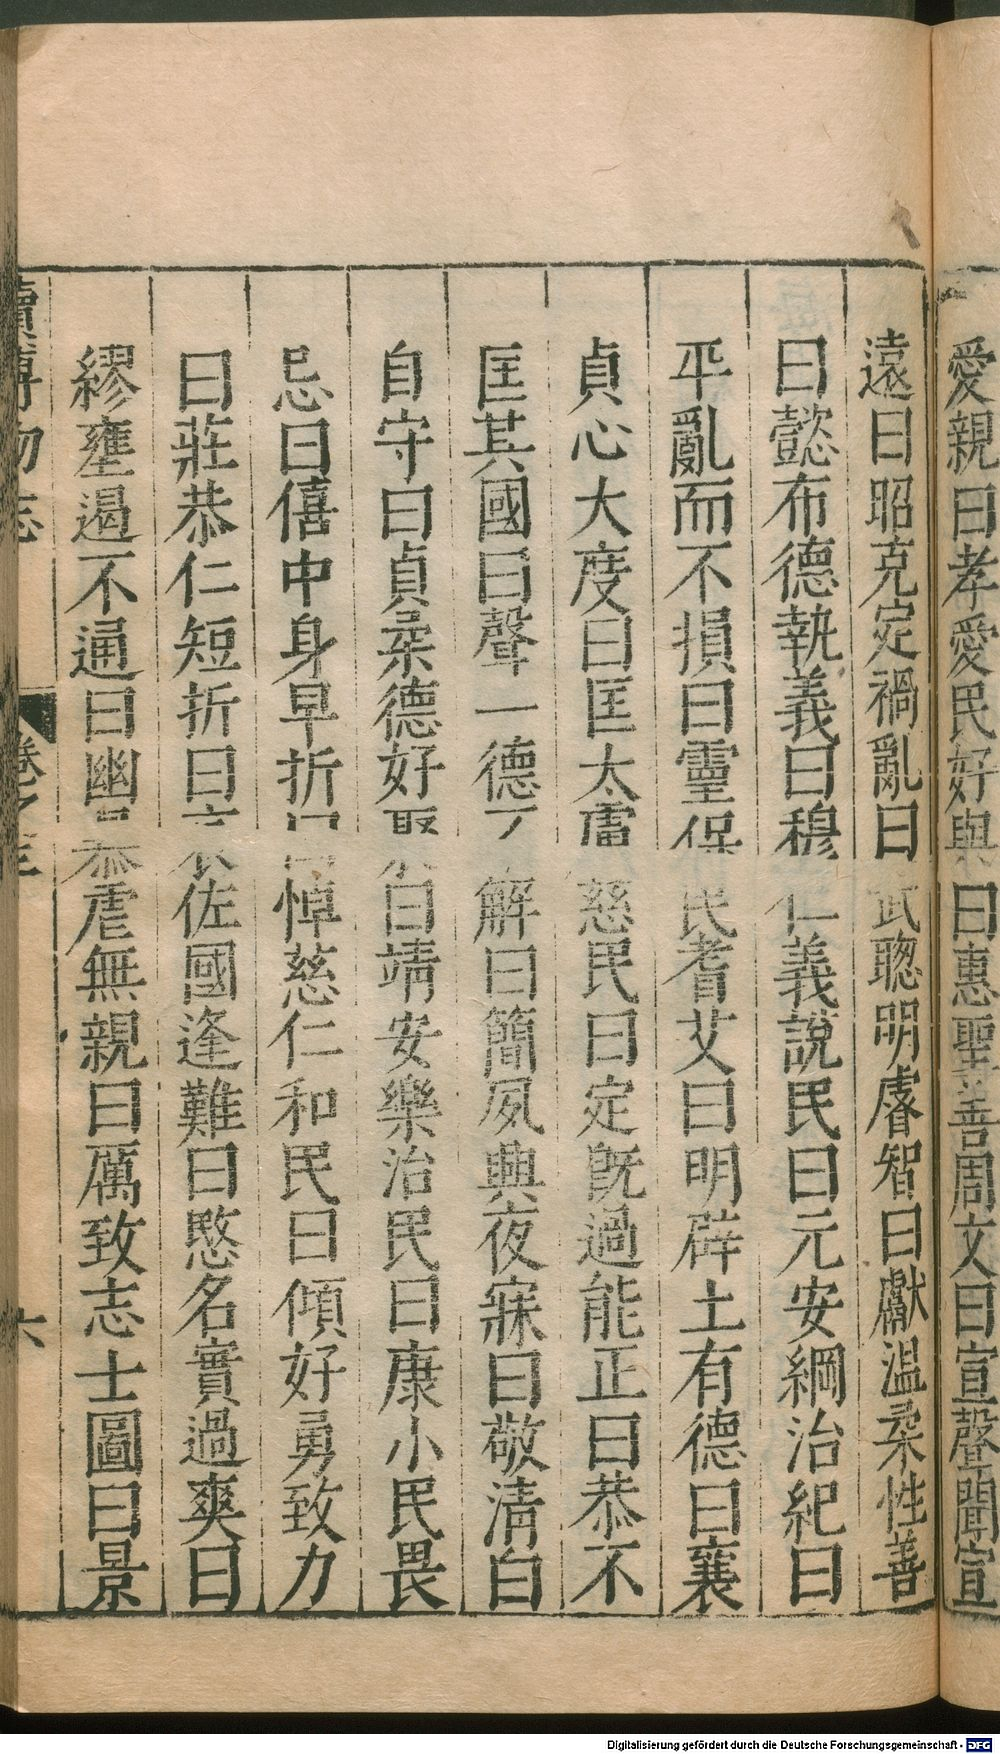 愛親曰孝愛民好與曰惠聖善周文曰宣聲聞宣
遠曰昭克定禍亂曰武聰明睿智曰獻溫柔性善
曰懿布德執義曰穆仁義說民曰元安綱治紀曰
平亂而不損曰靈保民耆艾曰明辟土有德曰襄
貞心大度曰匡大慮慈民曰定既過能正曰恭不
匡其國曰聲一德不解曰簡夙興夜寐曰敬清白
自守曰貞柔德好眾曰靖安樂治民曰康小民畏
忌曰僖中身早折曰悼慈仁和民曰傾好勇致力
曰莊恭仁短折曰哀佐國逢難曰愍名實過爽曰
繆壅遏不通曰幽暴虐無親曰厲致志士圖曰景
續博物志 卷之三 六
Digitalisierung gefördert durch die Deutsche Forschungsgemeinschaft - DFG